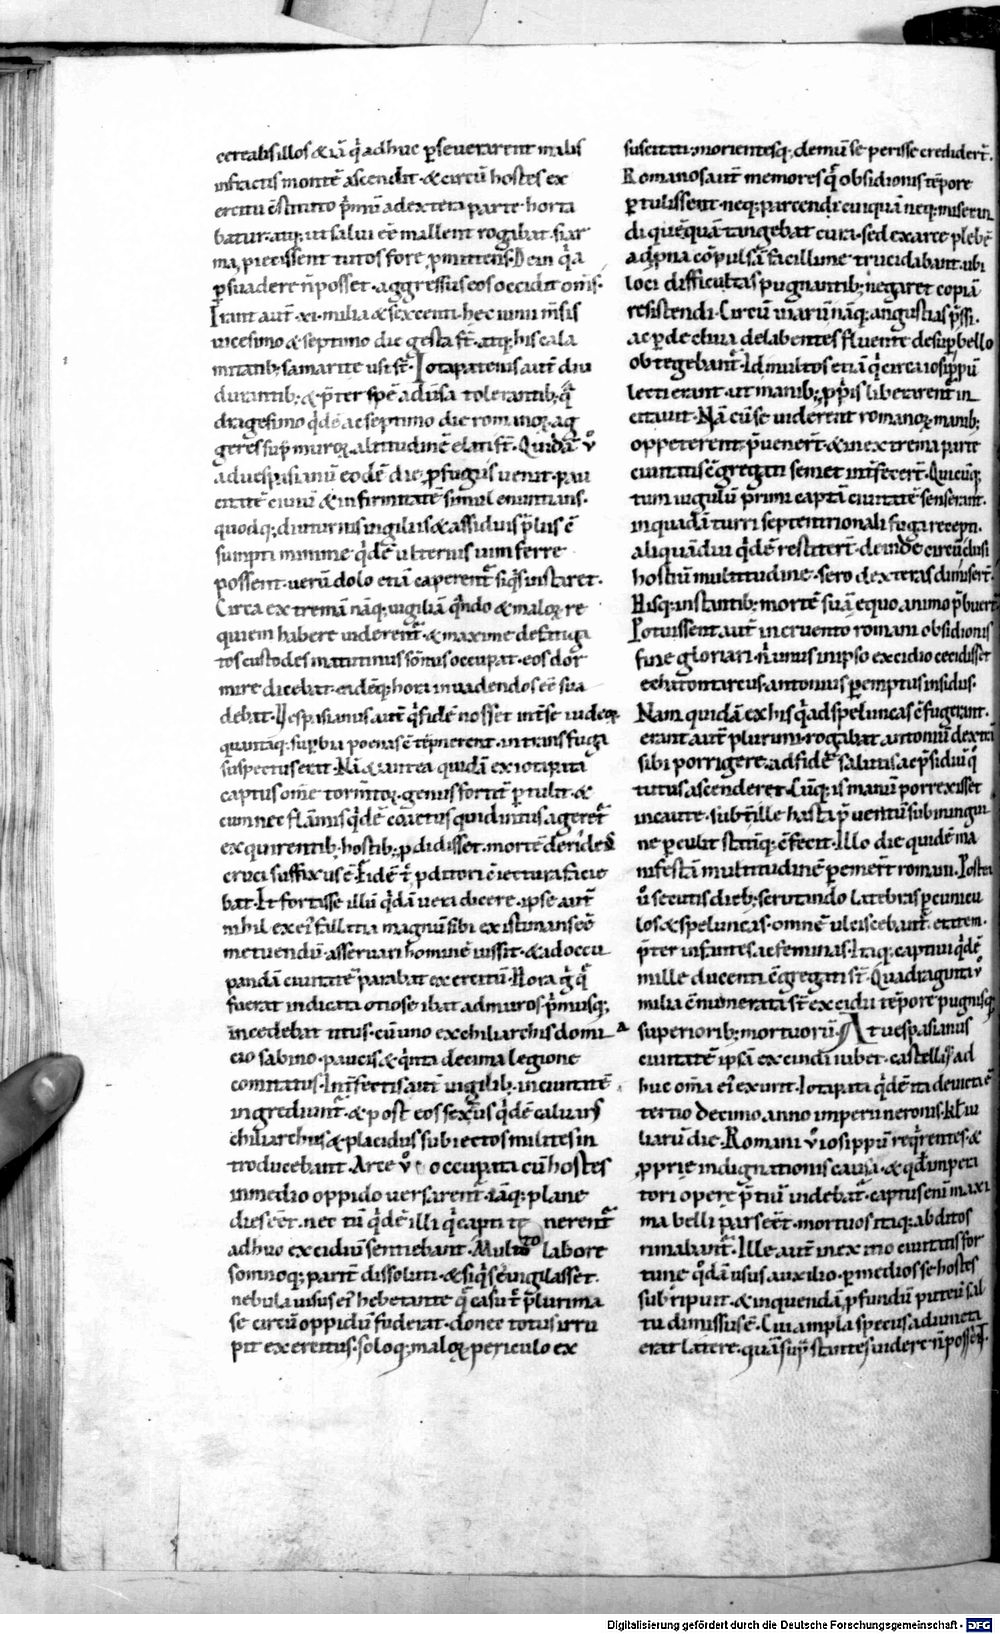 certabis illos & iā q̇ adhuc ꝑseuerarent malis
infractis montē ascendit· & circū hostes ex
ercitu cōstituto p̄mū a dextera parte· horta
batur· atq; ut salui eē mallent rogabat· si ar
ma ꝓiecissent tutos fore ꝓmittens· Dein q̄a
ꝑsuadere n̄ posset· aggressus eos occidit om̄s·
Erant aut̄ ·xi· milia & sexcenti· hec iunii m̄sis
uicesimo & septimo die gesta st̄· atq; his cala
mitatib; samarite usi st̄· Iotapatenis aut̄ diu
durantib; & p̄ter spē aduersa tolerantib; q̄
dragesimo q̇dē ac septimo die romanoꝝ ag
geres suꝑ muroꝝ altitudinē elati st̄· Quidā ů
ad uespasianū eodē die ꝓfugus uenit· pau
citatē ciuiū & infirmitatē simul enuntians·
quodq; diuturnis uigiliis & assiduis p̄liis c̄
sumpti minime q̇dē ulterius uim ferre
possent· uerū dolo etiā caperent̄ siq̇s instaret·
Circa extremā nāq; uigiliā q̄ndo & maloꝝ re
quiem habere uiderent̄· & maxime defatiga
tos custodes matutinus sōnus occupat· eos dor
mire dicebat· eādēq; horā inuadendos eē sua
debat· Vespasianus aut̄ q̇ fidē nosset int̄ se iudeoꝝ
quantāq; suꝑbia poenas cōtēpnerent· in transfuga
suspectus erat· Nā & antea quidā ex iotapata
captus om̄e tormētoꝝ genus fortit̄ ꝑtulit· &
cum nec flāmis q̇dē coactus quid intus ageret̄
exquirentib; hostib; ꝓdidisset· mortē deridēs
cruci suffixus ē· Fidē t̄ ꝓditori cōiectura facie
bat· Et fortasse illū q̇dā uera dicere· ipse aut̄
nihil ex eī fallatia magnū sibi existimans eē
metuendū· asseruari hominē iussit· & ad occu
pandā ciuitatē parabat exercitū· Hora g̊ q̄
fuerat indicata otiose ibat ad muros· p̄musq;
incedebat titus· cū uno ex chiliarchis domi
cio sabino· paucis & q̇nta decima legione
comitatus· Int̄fectis aut̄ uigilib; in ciuitatē
ingrediunt̄· & post eos sextus q̇dē caluarius
chiliarchus & placidus subiectos milites in
troducebant· Arce ů occupata cū hostes
in medio oppido uersarent̄· iāq; plane
dies eēt· nec tū q̇dē illi q̇ capti te nerent̄
adhuc excidiū sentiebant· Multo labore
somnoq; partī dissoluti· & siq̇s euigilasset·
nebula uisus eī hebetante q̄ casu t̄ plurima
se circū oppidū fuderat· donec totus irru
pit exercitus· soloq; maloꝝ periculo ex
suscitati· morientesq; demū se perisse crediderē·
Romanos aut̄ memores q̄ obsidionis tēpore
ꝑtulissent· neq; parcendi cuiquā neq; miseran
di quēquā tangebat cura· sed ex arce plebē
ad p̄na cōpulsā facillime trucidabant· ubi
loci difficultas pugnantib; negaret copiā
resistendi· Circū uiarū nāq; angustias p̄ssi·
ac ꝑ decliua delabentes fluente desuꝑ bello
obtegebant̄· Id multos etiā q̇ circa iosippū
lecti erant· ut manib; ꝓpriis liberarent̄ in
citauit· Nā cū se uiderent romanoꝝ manib;
oppeterent p̄uener̄t· & in extrema parte
ciuitatis cōgregati semet int̄fecer̄t· Quicūq;
tum uigilū primi captā ciuitatē senserant·
in quadā turri septentrionali fuga recepti·
aliquādiu q̇dē restiter̄t· deinde circūclusi
hostiū multitudine· sero dexteras dimiser̄t·
Hisq; instantib; mortē suā equo animo p̄buer̄t·
Potuissent aut̄ in cruento romani obsidionis
fine gloriari· n̄ unus in ipso excidio cecidisset
echatontarcus· antonius ꝑemptus insidiis·
Nam quidā ex his q̇ ad speluncas cōfugerant·
erant aut̄ plurimi· rogabat antoniū dexterā
sibi porrigere· ad fidē salutis ac p̄sidiū q̇
tutus ascenderet· Cūq; is manū porrexisset
incaute· subt̄ ille hasta p̄uentū sub inngui
ne ꝑculit· statimq; cōfecit· Illo die quidē ma
nifestā multitudinē ꝑemer̄t romani· Postea
ů secutis dieb; scrutando latebras ꝑ cunicu
los & speluncas· omnē ulciscebant̄ etatem·
p̄ter infantes ac feminas· Itaq; captiui q̇dē
mille ducenti cōgregati st̄· Quadraginta ů
milia cōnumerata st̄ excidii tēpore pugnisq;
superiorib; mortuorū· At uespasianus
ciuitatē ipsā excindi iubet· castellisq; ad
huc oma eī exurit· Iotapata q̇dē ita deuicta ē
tertio decimo anno imperii neronis· kł iu
liarū die· Romani ů iosippū req̇rentes· &
ꝓprie indignationis causa· & qd̄ impera
tori opere p̄tiū uidebat̄· captus enī maxi
ma belli pars eēt· mortuos itaq; abditos
rimabant̄· Ille aut̄ in excidio ciuitatis for
tune q̇dā usus auxilio· ꝑ medios se hostes
subripuit· & in quendā ꝓfundū puteū sal
tu dimissus ē· Cui ampla specus adiuncta
erat latere· quā suꝑstantes uidere n̄ possēt·
Digitalisierung gefördert durch die Deutsche Forschungsgemeinschaft - DFG